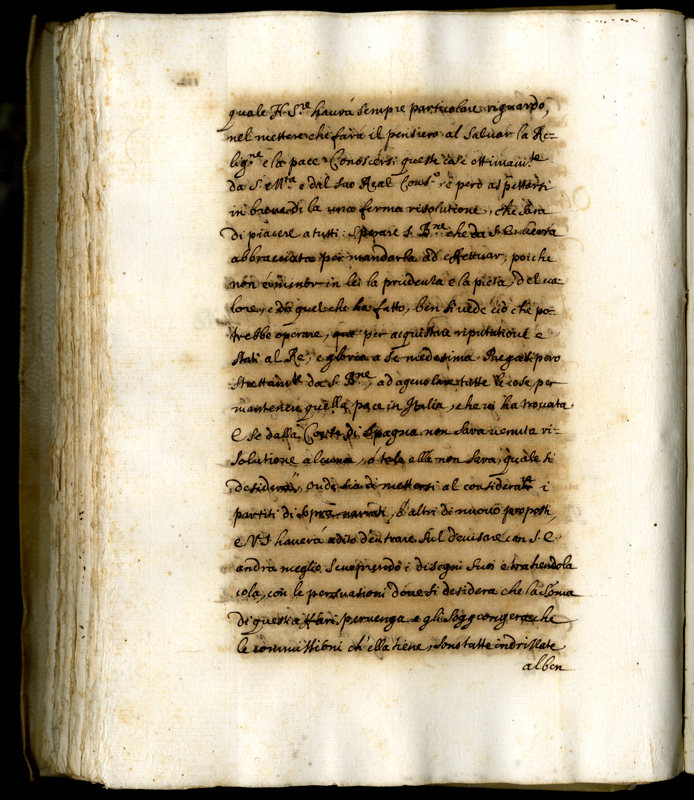 quale N. S.re haurà sempre particolare riguardo,
nel mettere che farà il pensiero al saluar la Re-
lig.ne e la pace. Conoscersi queste cose ottimam.te
da S. M.tà e dal suo Real Cons.o, e però aspettarsi
in breue di la una ferma risolutione, che sarà
di piacere a tutti: Sperare S. B.ne che da S. E. uerrà
abbracciata per mandarla ad effettuar, poiche
non è minor in lei la prudenza e la pietà, del ua-
lore, e da quel che ha fatto, ben si uede ciò che po-
trebbe operare, per acquistare riputatione e
stati al Re, e gloria a se medesima. Pregarsi però
strettam.te da S. B.ne, ad ageuolare tutte le cose per
mantener quella pace in Italia, che ui ha trouata
E se dalla Corte di Spagna non sarà uenuta ri-
solutione alcuna, o tale ella non sarà, quale si
desidera, onde sia di mettersi al considerar i
partiti di sopra narrati, o altri di nuouo proposti,
e V. S. hauerà adito d'entrare sul deuisare con S. E.
andrà meglio scuoprendo i disegni suoi e trahendola
colà, con le persuationi doue si desidera che la soma
di questi affari peruenga e gli soggiongerà che
le committioni ch'ella tiene, sono tutte indrizzate
al ben